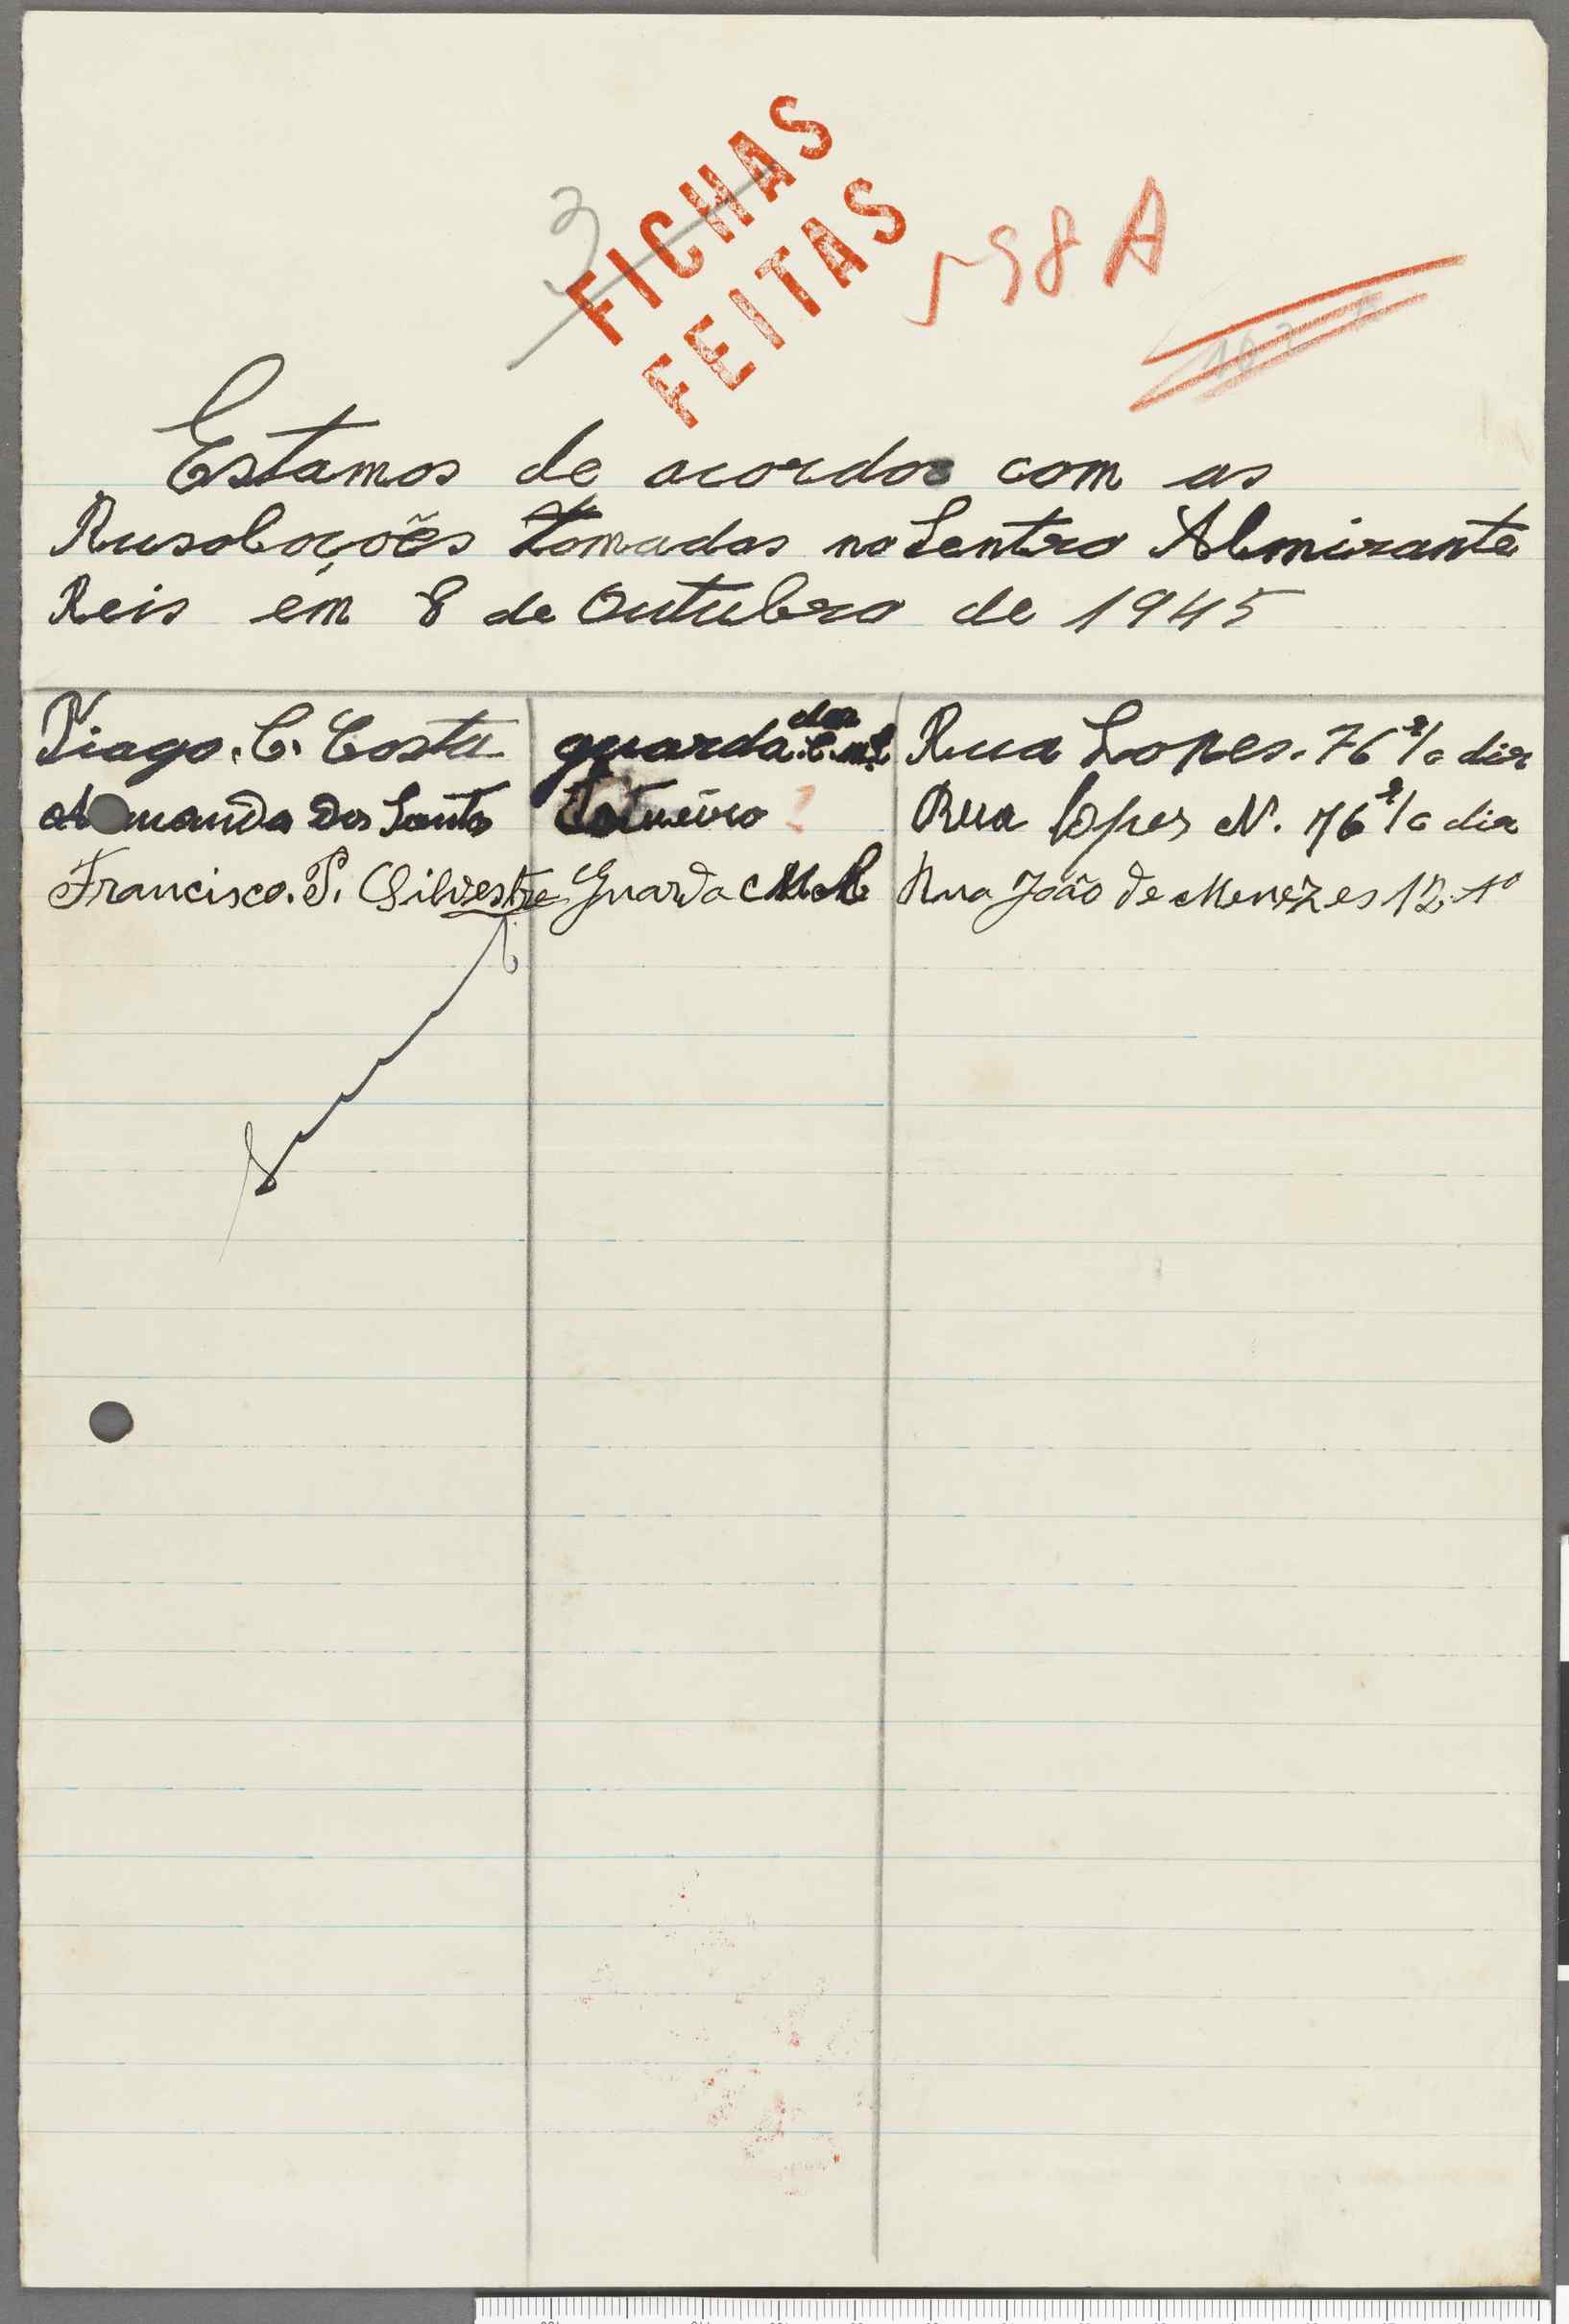 3
FICHAS
FEITAS
598 A
Estamos de acordo com as
Rusoluções tomadas no Sentro Almirante
Reis em 8 de Outubro de 1945
Tiago. C. Costa guarda da C.M.L Rua Lopes. 76 r/c dir
dos Santos Rua Lopes N. 76 r/c dir
Francisco. P. Silvestre Guarda C M L Rua João de Menezes 12, 1º